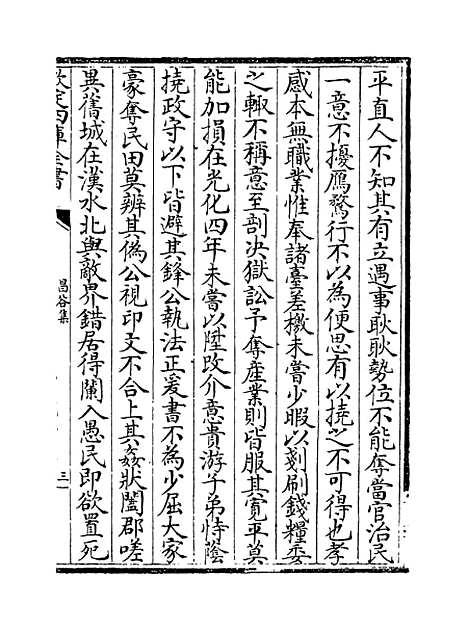 平直人不知其有立遇事耿耿勢位不能奪當官治民
一意不擾鴈鶩行不以為便思有以撓之不可得也孝
感本無職業惟奉諸臺差檄未嘗少暇以刻刷錢糧委
之輙不稱意至剖决獄訟予奪產業則皆服其寛平莫
能加損在光化四年未嘗以陞改介意貴游子弟恃蔭
撓政守以下皆避其鋒公執法正爰書不為少屈大家
豪奪民田莫辨其偽公視印文不合上其姦狀闔郡嗟
異舊城在漢水北與敵界錯居得闌入愚民即欲置死
欽定四庫全書
昌谷集
三